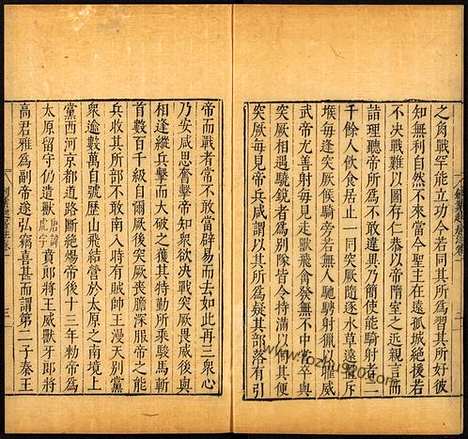 之角戰罕能立功今若同其所為習其所好彼
知無利自然不來當今聖主在遠孤城絕援若
不決戰難以圖存仁恭以帝隋室之近親言而
詣理聽帝所為不敢違異乃簡使能騎射者二
千餘人飲食居止一同突厥隨逐水草遠置斥
堠每逢突厥候騎旁若無人馳騁射獵以曜威
武帝尤善射每見走獸飛禽發無不中嘗卒與
突厥相遇驍銳者為別隊皆令持滿以伺其便
突厥每見帝兵咸謂以其所為疑其部落有引
帝而戰者常不敢當辟易而去如此再三衆心
乃安咸思奮擊帝知衆欲決戰突厥畏威後與
相逢縱兵擊而大破之獲其特勤所乘駿馬斬
首數百千級自爾厥後突厥喪膽深服帝之能
兵收其所部不敢南入時有賊帥王漫天別黨
衆逾數萬自號歷山飛結營於太原之南境上
黨西河京都道路斷絕煬帝後十三年勑帝為
太原留守仍遣獸唐諱虎字賁郎將王威獸牙郎將
高君雅為副帝遂私竊喜甚而謂第二子秦王